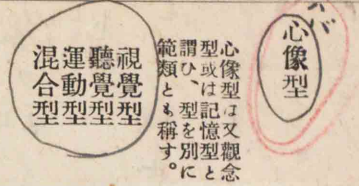 心像型
心像型は又觀念
型或は記憶型と
謂ひ、型を別に
範類とも稱す。
視覺型
聽覺型
運動型
混合型